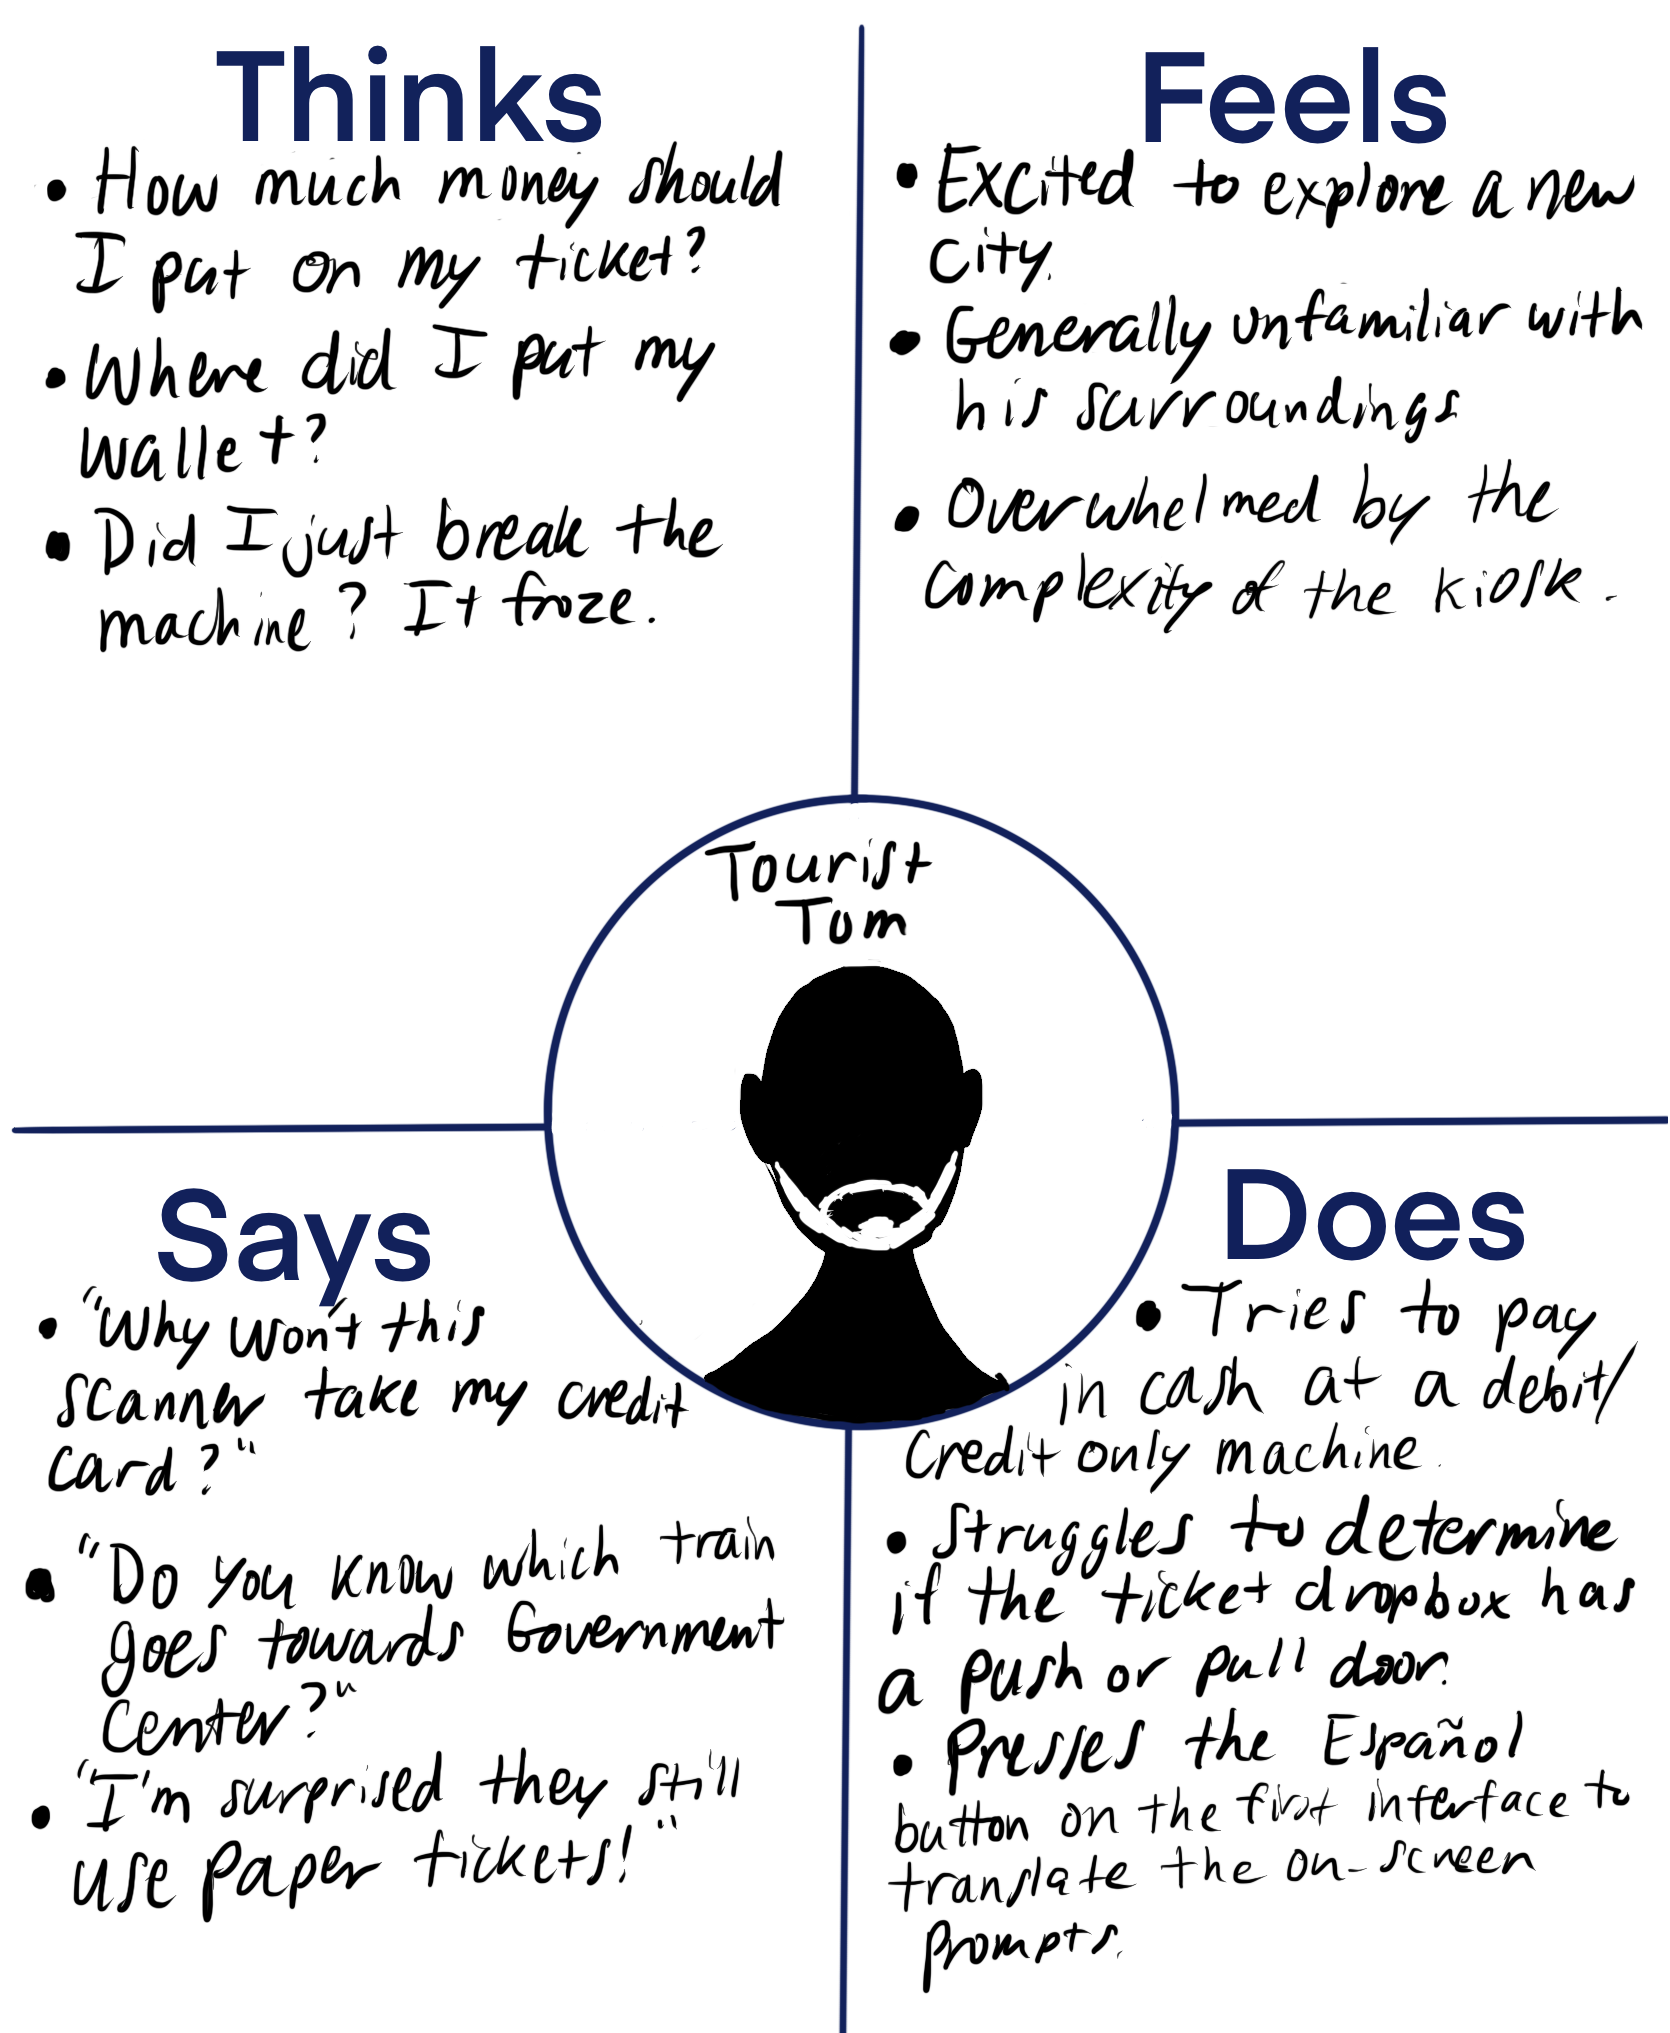 Thinks
• How much money should
I put on my ticket?
• Where did I put my
wallet?
• Did I just break the
machine? It froze.
Feels
• Excited to explore a new
city.
• Generally unfamiliar with
his surroundings
• Overwhelmed by the
complexity of the kiosk.
Tourist
Tom
Says
• "Why won't this
scanner take my credit
card?"
• "Do you know which train
goes towards Government
Center?"
• "I'm surprised they still
use paper tickets!"
Does
• Tries to pay
in cash at a debit/
credit only machine.
• Struggles to determine
if the ticket dropbox has
a push or pull door.
• Presses the Español
button on the first interface to
translate the on-screen
prompts.